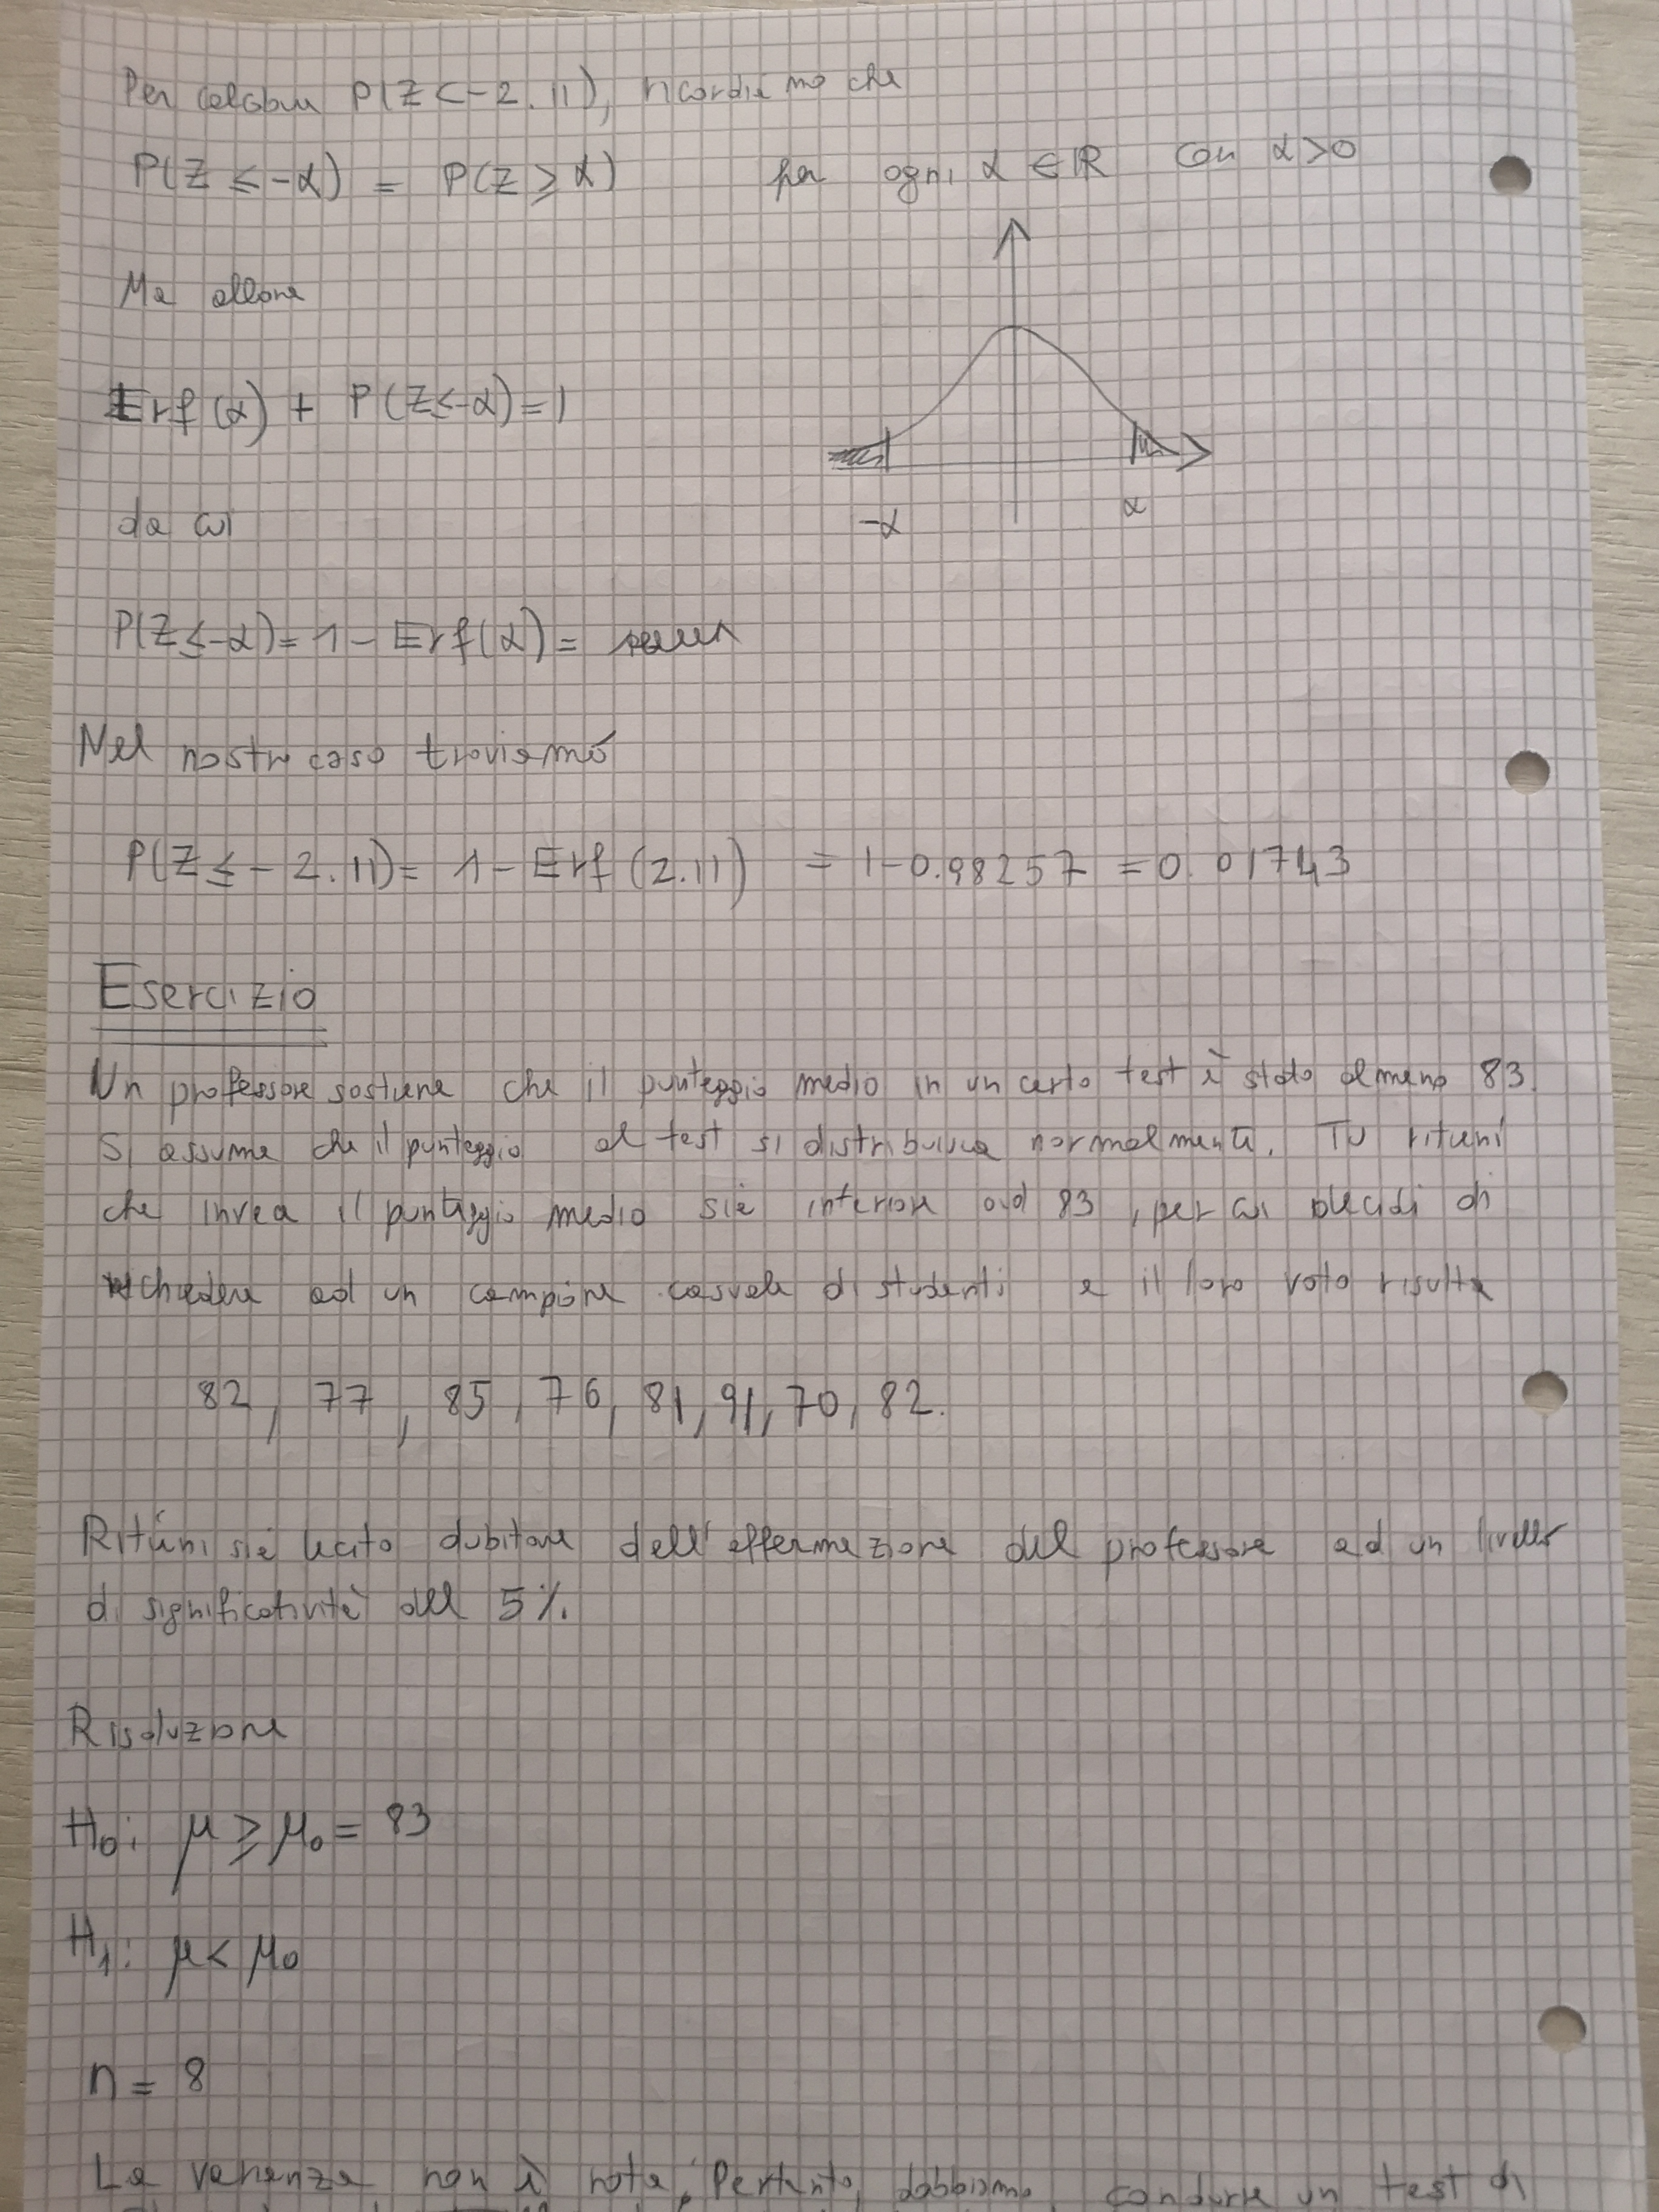 Per calcolare P(Z<-2.11), ricordiamo che
P(Z ≤ -α) = P(Z ≥ α) per ogni α ∈ ℝ con α>0
Ma allora
Erf(α) + P(Z≤-α)=1
-α α
da cui
P(Z≤-α)= 1 - Erf(α)=
Nel nostro caso troviamo
P(Z≤-2.11)= 1 - Erf(2.11) = 1-0.98257 = 0.01743
Esercizio
Un professore sostiene che il punteggio medio in un certo test è stato almeno 83.
Si assume che il punteggio al test si distribuisca normalmente. Tu ritieni
che invece il punteggio medio sia inferiore ad 83, per cui decidi di
richiedere ad un campione casuale di studenti e il loro voto risulta
82, 77, 85, 76, 81, 91, 70, 82.
Ritieni sia lecito dubitare dell'affermazione del professore ad un livello
di significatività del 5%.
Risoluzione
H₀: μ ≥ μ₀ = 83
H₁: μ < μ₀
n = 8
La varianza non è nota. Pertanto, dobbiamo condurre un test di